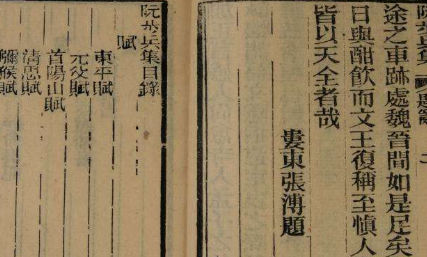 阮步兵集
途之車跡處魏晉間如是足矣
日與酣飲而文王復稱至慎人
皆以天全者哉
婁東張溥題
阮步兵集目錄
賦
東平賦
亢父賦
首陽山賦
清思賦
獼猴賦